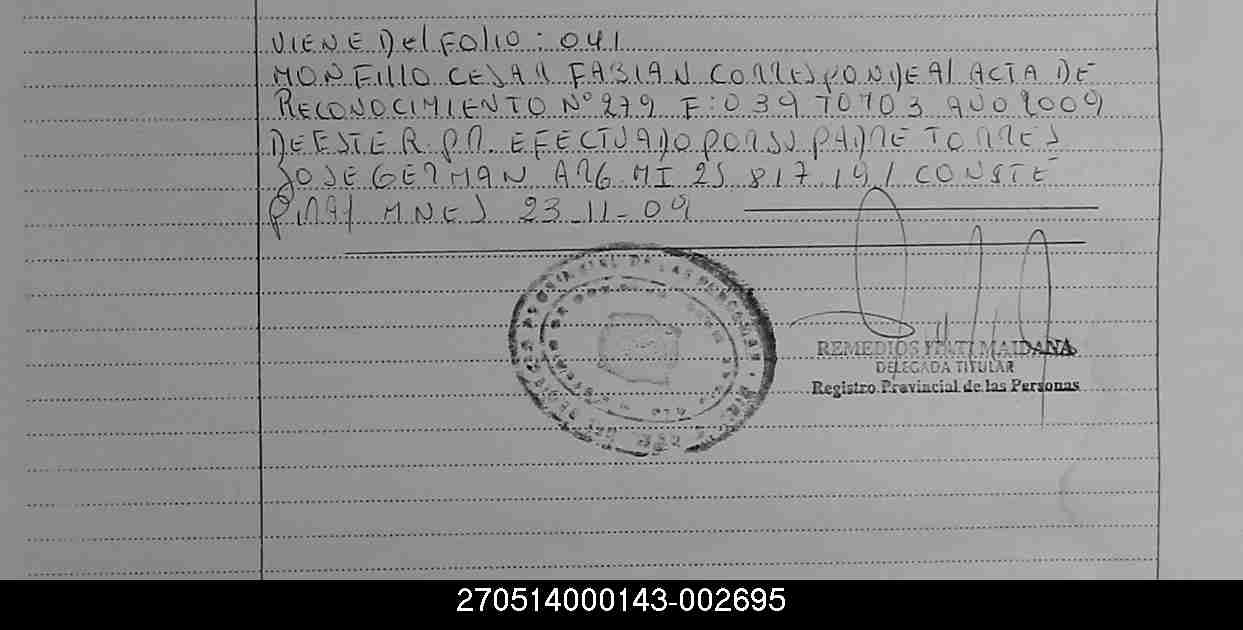 VIENE Del FOLIO: 041
MONFILLO CESAR FABIAN CORRESPONDE Al ACTA DE
RECONOCIMIENTO Nº 279 F: 039 TOMO 3 AÑO 2009
DE ESTE R. PR. EFECTUADO POR SU PADRE TORRES
JOSE GERMAN ARG MI 25 817 191 CONSTE
MNES 23-11-09
REMEDIOS MAIDANA
DELEGADA TITULAR
Registro Provincial de las Personas
270514000143-002695